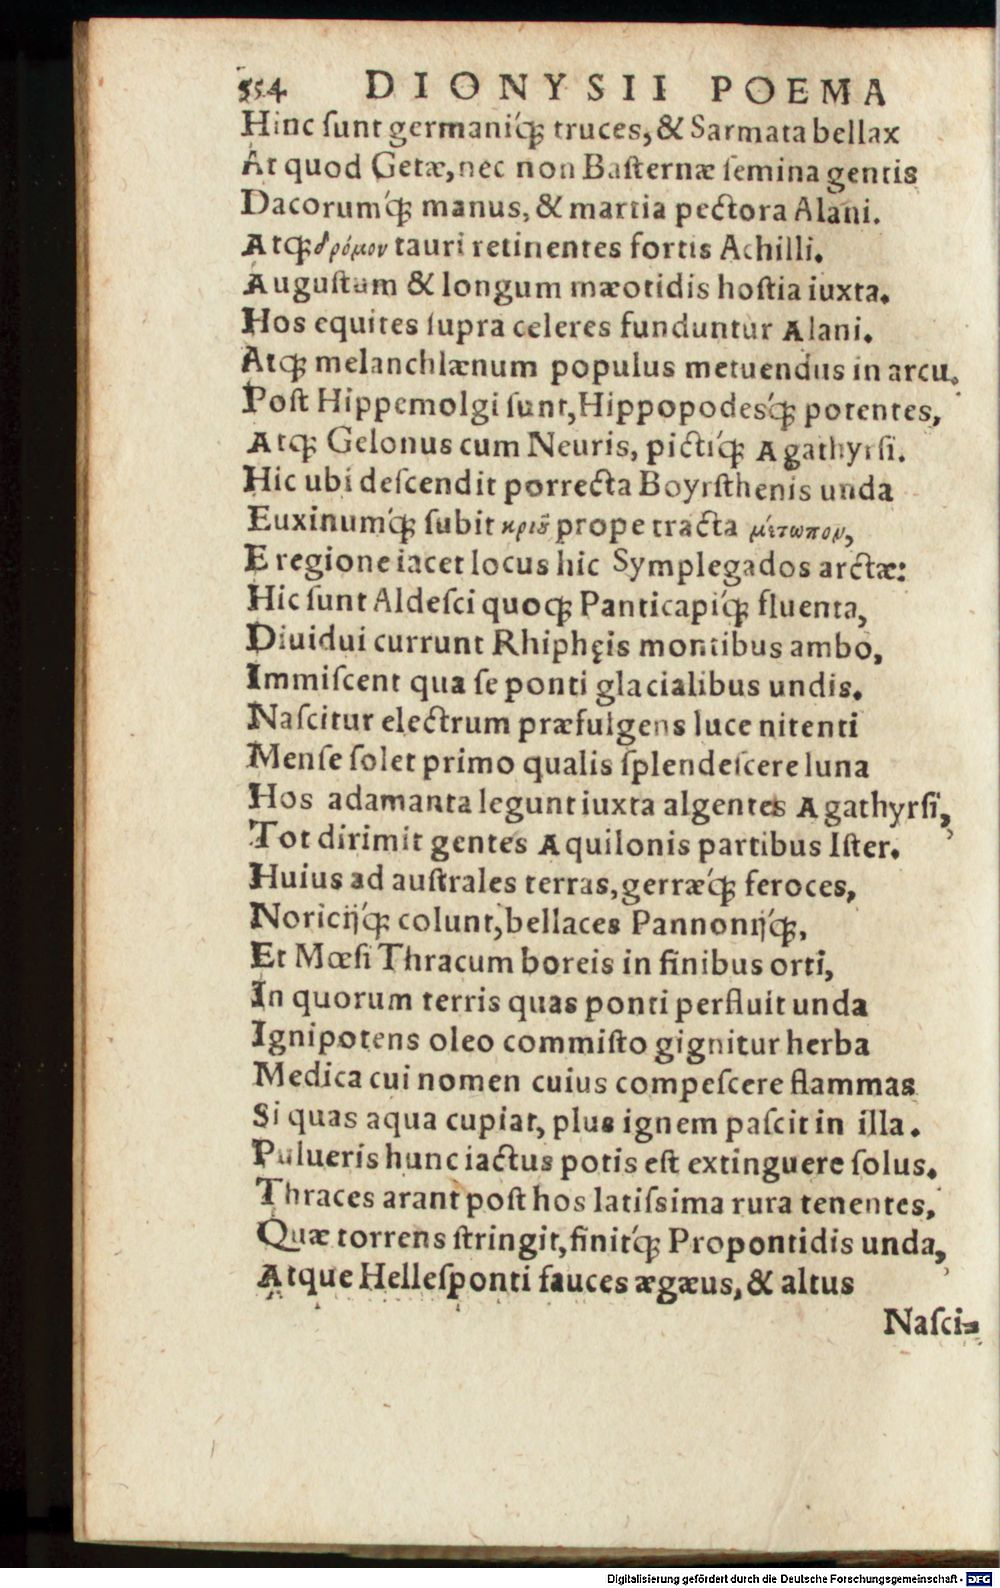 554 DIONYSII POEMA
Hinc ſunt germaniq́; truces, & Sarmata bellax
At quod Getæ, nec non Baſternæ ſemina gentis
Dacorumq́; manus, & martia pectora Alani.
Atq; δρόμον tauri retinentes fortis Achilli.
Auguſtum & longum mæotidis hoſtia iuxta.
Hos equites ſupra celeres funduntur Alani.
Atq; melanchlænum populus metuendus in arcu.
Poſt Hippemolgi ſunt, Hippopodesq́; potentes,
Atq; Gelonus cum Neuris, pictiq́; Agathyrſi.
Hic ubi deſcendit porrecta Boyrſthenis unda
Euxinumq́; ſubit κριȣ͂ prope tracta μέτωπον,
E regione iacet locus hic Symplegados arctæ:
Hic ſunt Aldeſci quoq; Panticapiq́; fluenta,
Diuidui currunt Rhiphęis montibus ambo,
Immiſcent qua ſe ponti glacialibus undis.
Naſcitur electrum præfulgens luce nitenti
Menſe ſolet primo qualis ſplendeſcere luna
Hos adamanta legunt iuxta algentes Agathyrſi,
Tot dirimit gentes Aquilonis partibus Iſter.
Huius ad auſtrales terras, gerræq́; feroces,
Noricijq́; colunt, bellaces Pannonijq́;,
Et Mœſi Thracum boreis in finibus orti,
In quorum terris quas ponti perfluit unda
Ignipotens oleo commiſto gignitur herba
Medica cui nomen cuius compeſcere flammas
Si quas aqua cupiat, plus ignem paſcit in illa.
Pulueris hunc iactus potis eſt extinguere ſolus.
Thraces arant poſt hos latiſsima rura tenentes,
Quæ torrens ſtringit, finitq́; Propontidis unda,
Atque Helleſponti fauces ægæus, & altus
Naſci-
Digitalisierung gefördert durch die Deutsche Forschungsgemeinschaft - DFG